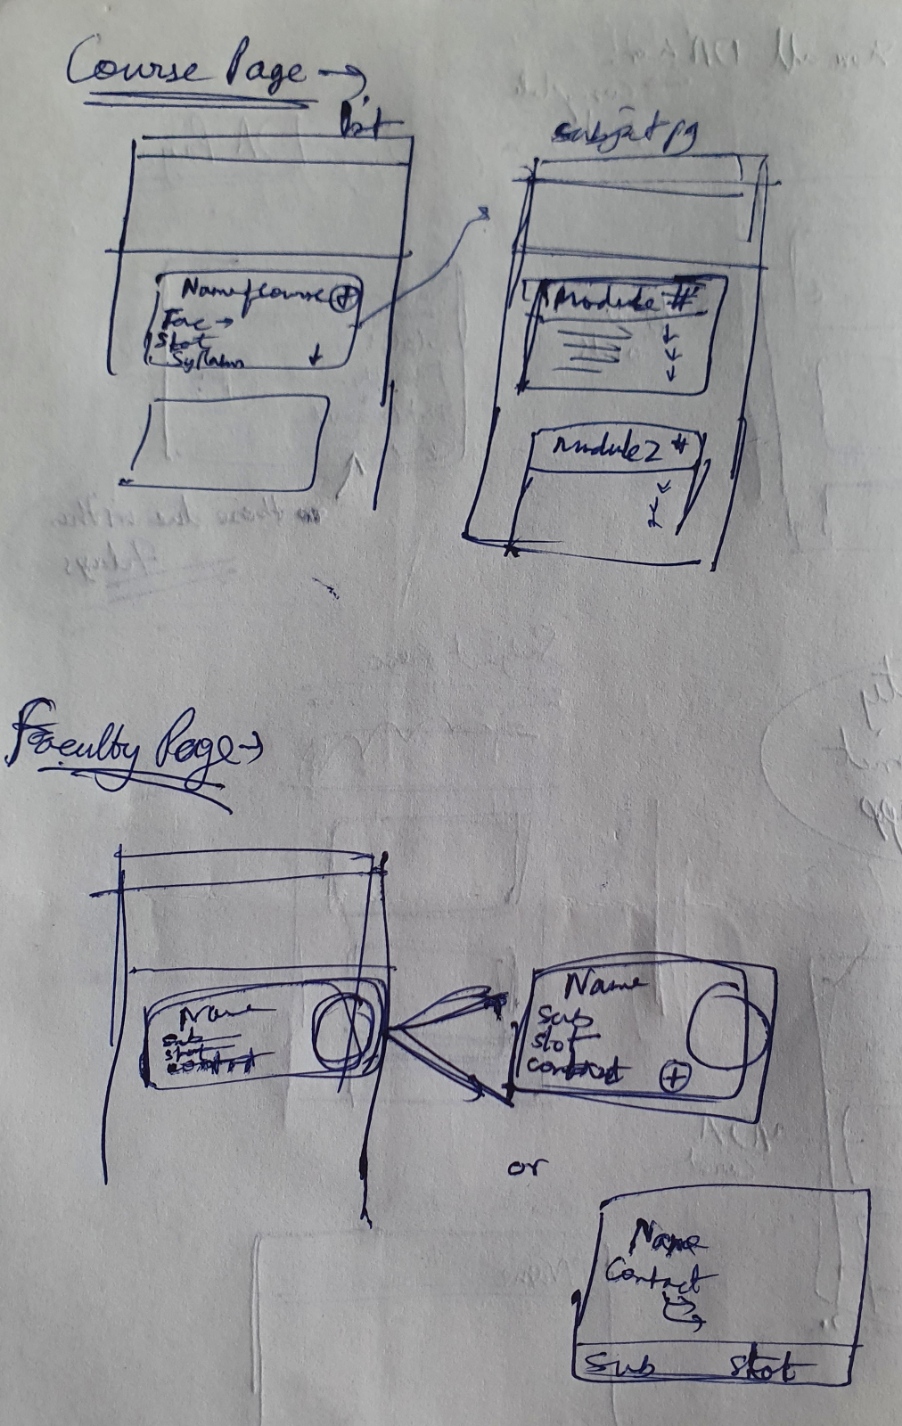 Course Page →
list
subject pg
Name of course +
Fac →
Slot
Syllabus ↓
Module #1
Module 2 #
Faculty Page →
Name
sub
slot
contact
Name
Sub
slot
contact +
or
Name
Contact
Sub slot